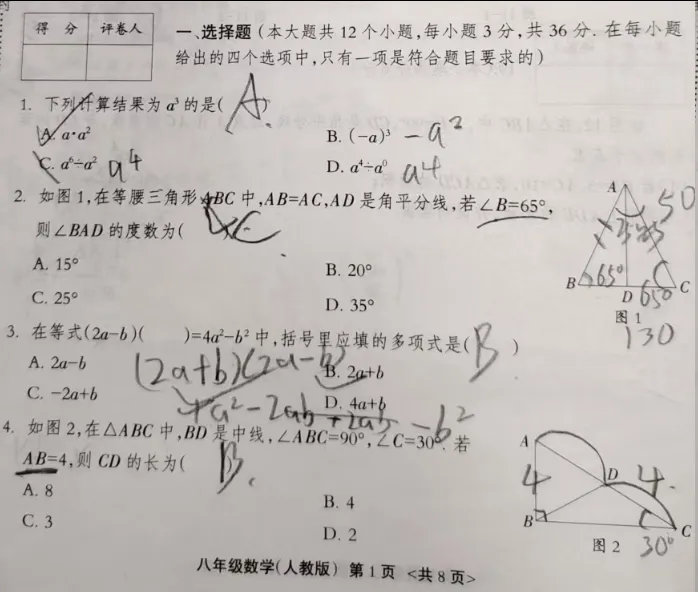 得 分 评卷人
一、选择题(本大题共 12 个小题,每小题 3 分,共 36 分. 在每小题
给出的四个选项中,只有一项是符合题目要求的)
1. 下列计算结果为 a³ 的是( A )
A. a·a²
B. (-a)³ -a³
C. a⁶÷a² a4
D. a⁴÷a⁰ a4
2. 如图 1,在等腰三角形 ABC 中,AB=AC,AD 是角平分线,若∠B=65°,
则∠BAD 的度数为( C
A. 15°
B. 20°
C. 25°
D. 35°
A 50
25 25
65° 65°
B D C
图 1
130
3. 在等式(2a-b)( )=4a²-b² 中,括号里应填的多项式是( B )
A. 2a-b
B. 2a+b
(2a+b)(2a-b)
C. -2a+b
D. 4a+b
4a²-2ab+2ab-b²
4. 如图 2,在△ABC 中,BD 是中线,∠ABC=90°,∠C=30°. 若
AB=4,则 CD 的长为( B.
A. 8
B. 4
C. 3
D. 2
A
D 4
4
B C
30°
图 2
八年级数学(人教版) 第 1 页 <共 8 页>